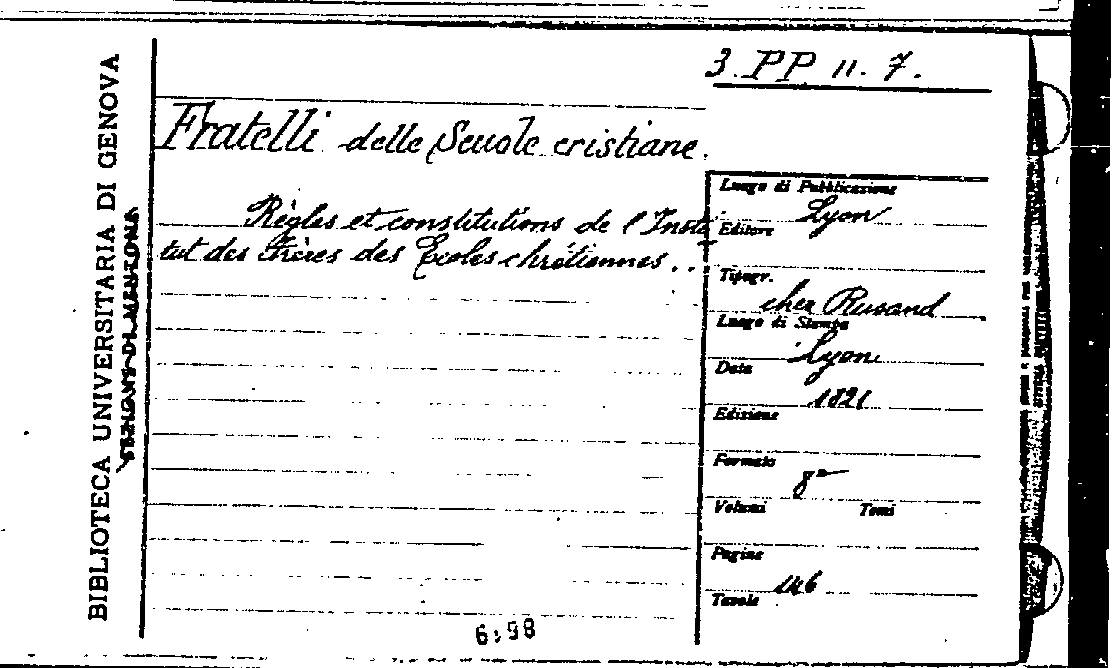 3. PP II. 7.
Fratelli delle Scuole cristiane.
Règles et constitutions de l'Insti
tut des Frères des Ecoles chrétiennes..
Luogo di Pubblicazione
Lyon
Editore
Tipogr.
chez Rusand
Luogo di Stampa
Lyon
Data
1821
Edizione
Formato
8°
Volumi Tomi
Pagine
146
Tavole
BIBLIOTECA UNIVERSITARIA DI GENOVA